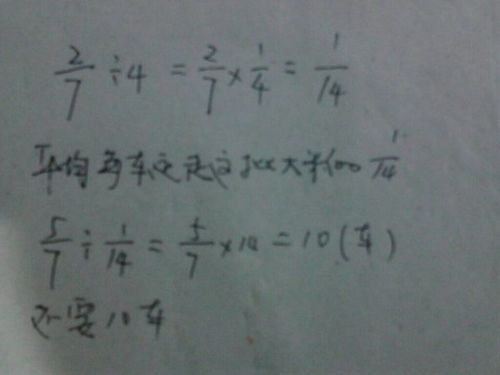 2/7 ÷ 4 = 2/7 × 1/4 = 1/14
平均每车运走这批大米的 1/14
5/7 ÷ 1/14 = 5/7 × 14 = 10 (车)
还要10车